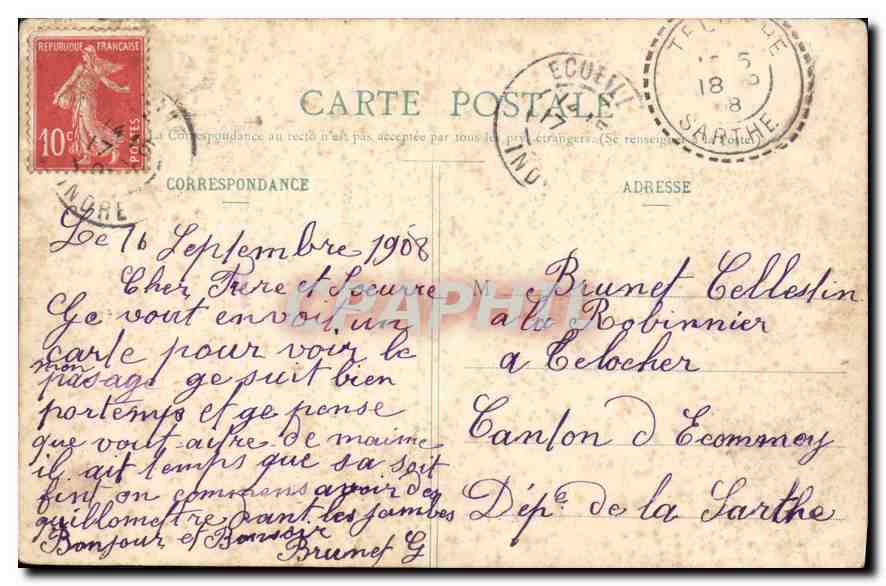 REPUBLIQUE FRANÇAISE
10c
POSTES
INDRE
ECUEILL
TELOCHE
18
SARTHE
CARTE POSTALE
La Correspondance au recto n'est pas acceptée par tous les pays étrangers. (Se renseigner à la Poste)
CORRESPONDANCE
Le 16 Septembre 1908
Cher Frere et Soeurre
Ge vout envoi un
carte pour voir le
mon
pasage ge suit bien
portemps et ge pense
que vout aitre de maime
il ait temps que sa soit
fint on commens avoir des
quillomettre dant les jambes
Bonjour et Bonsoir
Brunet G
ADRESSE
M. Brunet Cellestin
a la Robinnier
a Telocher
Canton d Ecommoy
Dépt de la Sarthe
CPAPHIL